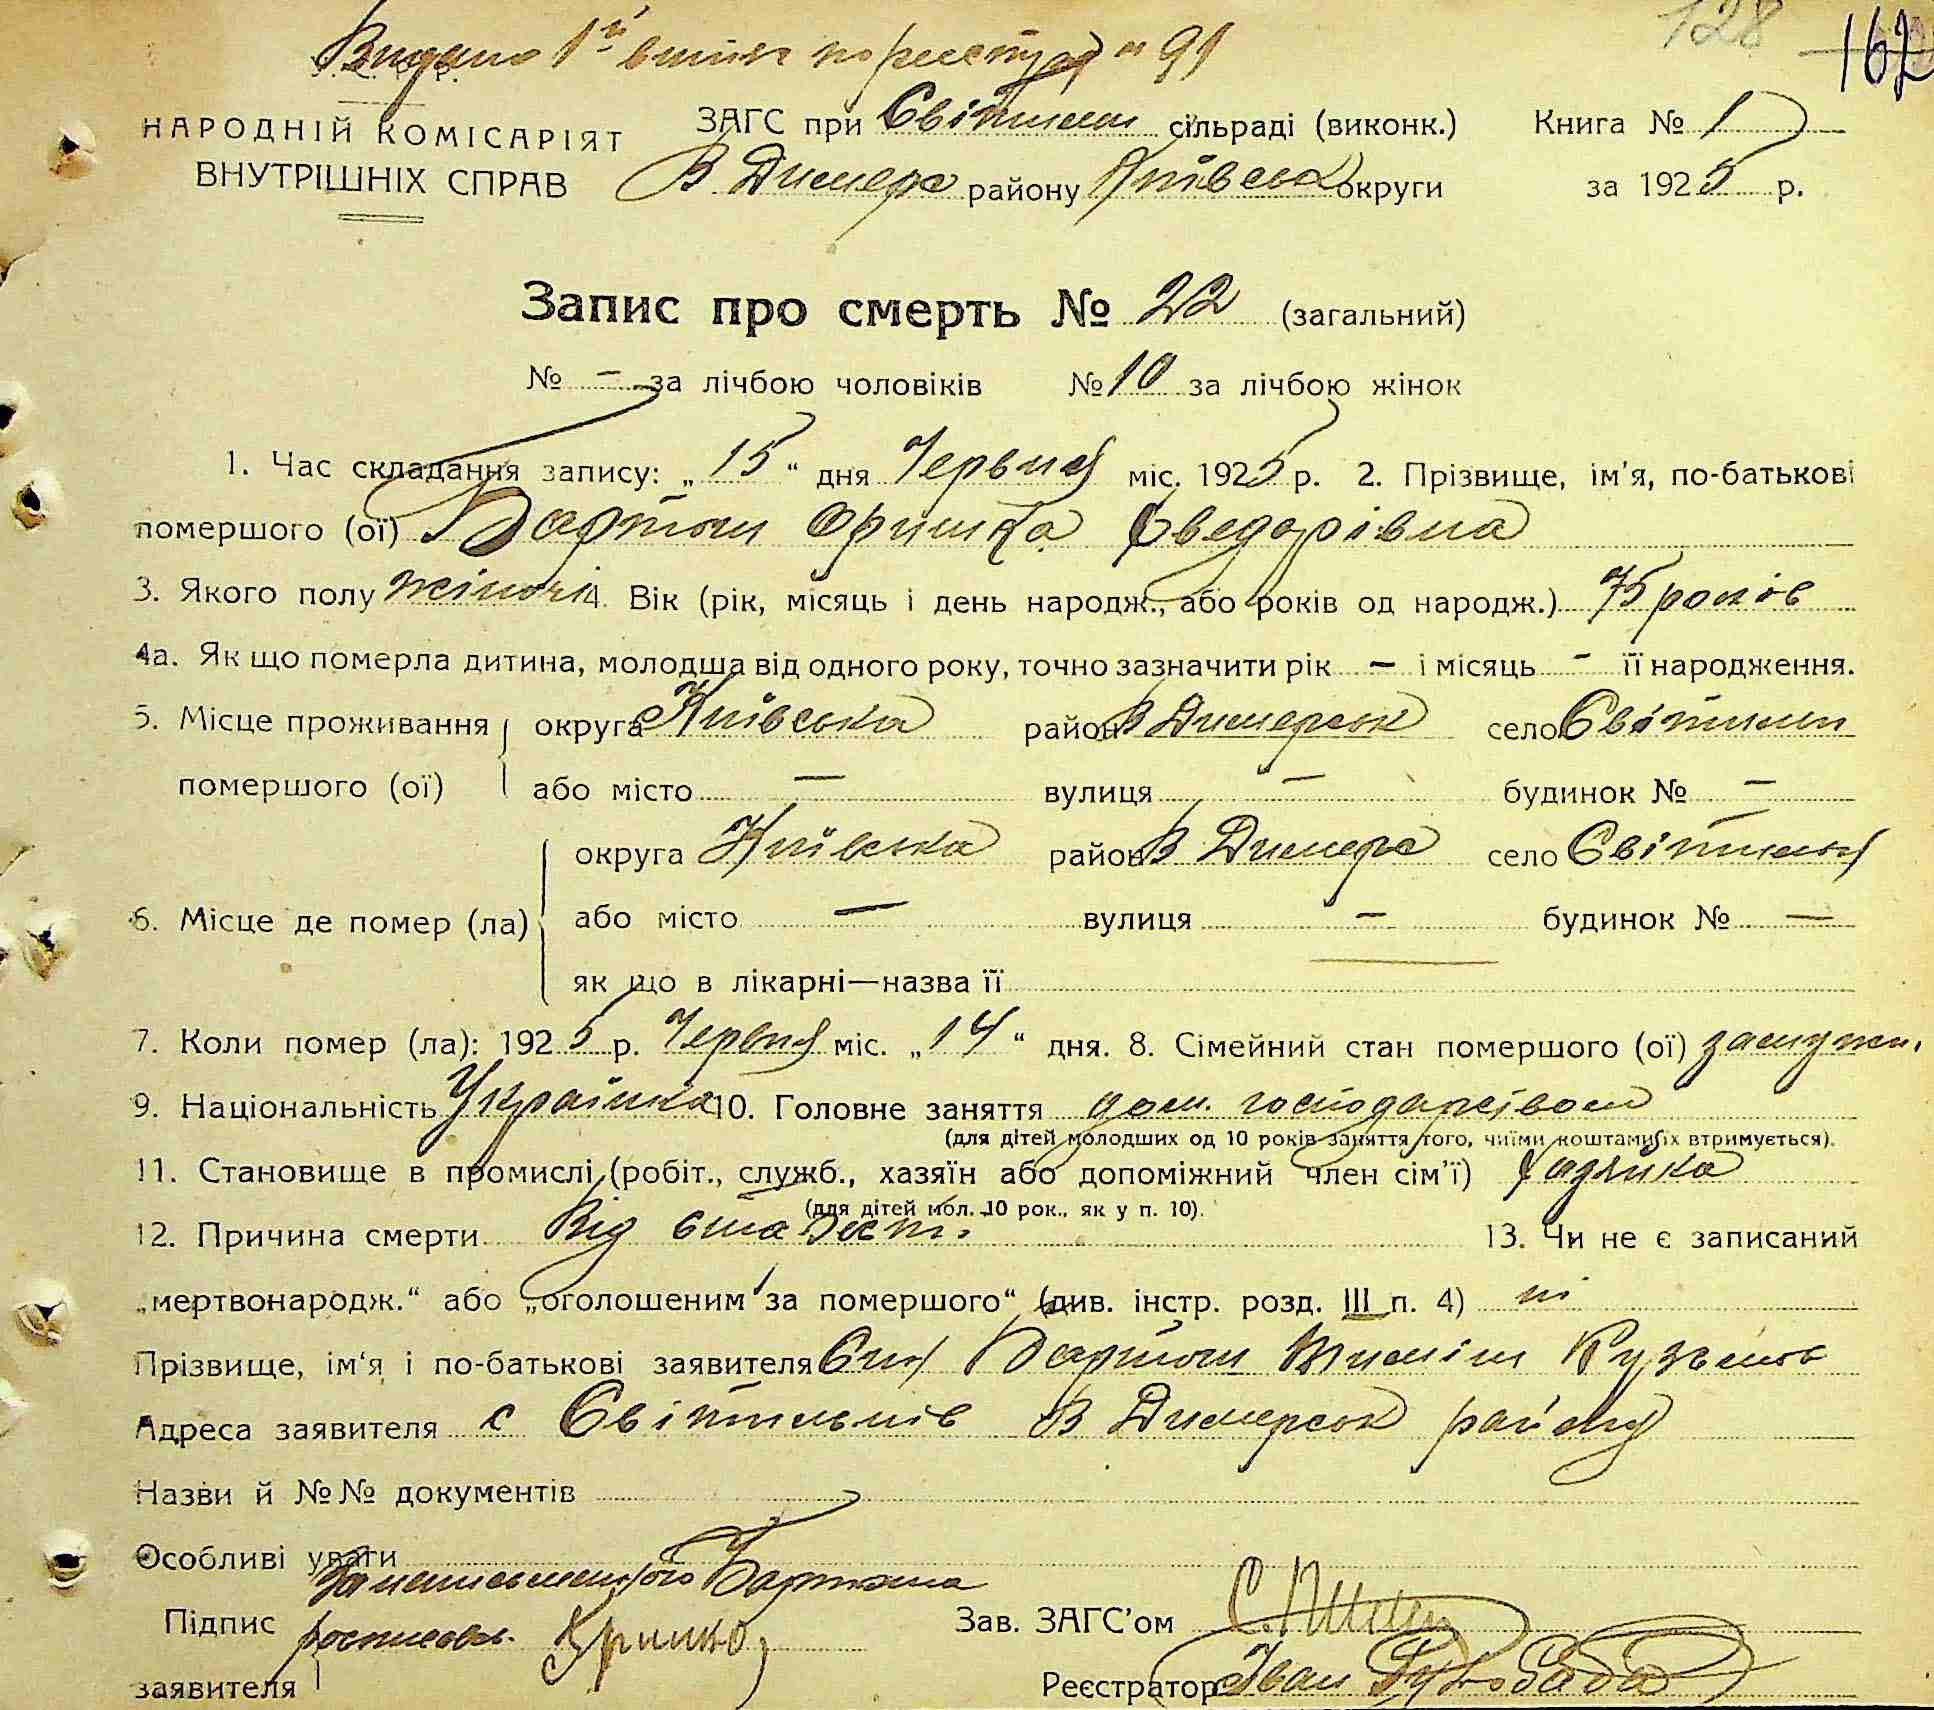 Видано 1й витяг по реєстру № 91
128 162
НАРОДНІЙ КОМІСАРІЯТ
ВНУТРІШНІХ СПРАВ
ЗАГС при Світильн сільраді (виконк.) Книга № 1
В Димерс району Київськ округи за 1925 р.
Запис про смерть № 22 (загальний)
№ – за лічбою чоловіків № 10 за лічбою жінок
1. Час складання запису: „15“ дня Червня міс. 1925 р. 2. Прізвище, ім'я, по-батькові
помершого (ої) Бартош Оришка Хведорівна
3. Якого полу жіночі 4. Вік (рік, місяць і день народж., або років од народж.) 75 років
4а. Як що померла дитина, молодша від одного року, точно зазначити рік – і місяць – її народження.
5. Місце проживання округа Київська район В Димерськ село Світильн
помершого (ої) або місто – вулиця – будинок № –
округа Київська район В Димерс село Світильня
6. Місце де помер (ла) або місто – вулиця – будинок № –
як що в лікарні—назва її
7. Коли помер (ла): 1925 р. Червня міс. „14“ дня. 8. Сімейний стан помершого (ої) замужн.
9. Національність Українка 10. Головне заняття дом. господарством
(для дітей молодших од 10 років заняття того, чиїми коштами їх втримується).
11. Становище в промислі (робіт., служб., хазяїн або допоміжний член сім'ї) Хазяйка
(для дітей мол. 10 рок., як у п. 10).
12. Причина смерти Від 13. Чи не є записаний
„мертвонародж.“ або „оголошеним за помершого“ (див. інстр. розд. III п. 4) ні
Прізвище, ім'я і по-батькові заявителя Син Бартош Кузьмов
Адреса заявителя с Світильнів В Димерськ району
Назви й №№ документів
Особливі уваги
За неписьменного Бартоша
Підпис росписавсь Зав. ЗАГС'ом
заявителя Реєстратор Іван